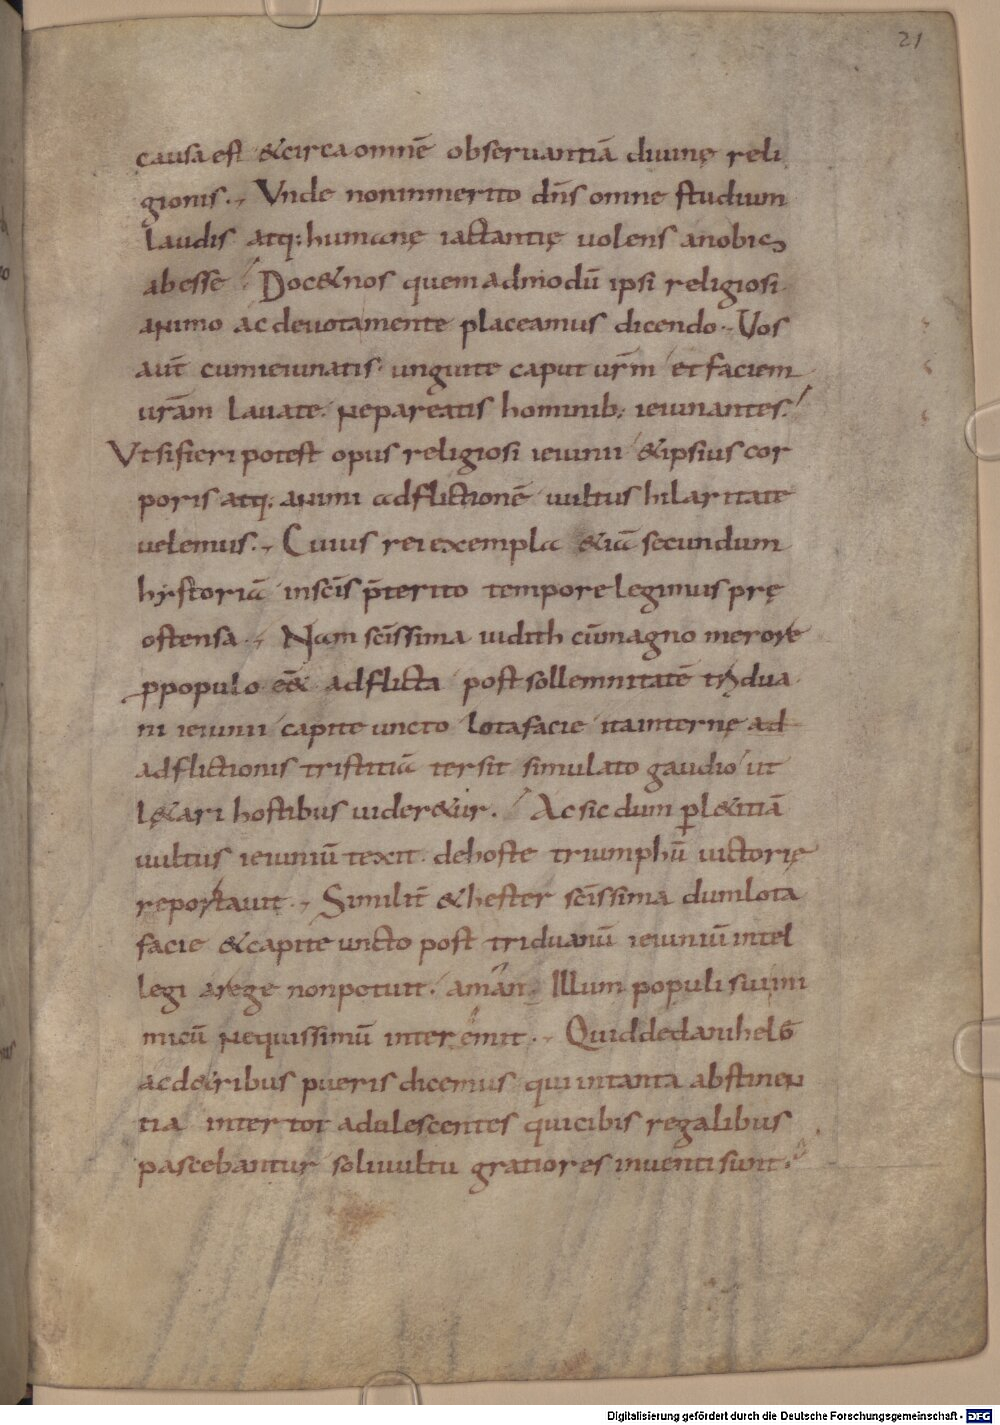 21
causa est & circa omnē obseruantiā diuinę reli
gionis. Vnde non inmerito dn̄s omne studium
laudis atq: humanę iactantię uolens a nobis
abesse Doc& nos quem admodū ipsi religiosi
animo ac deuota mente placeamus dicendo. Uos
aut̄ cum ieiunatis unguite caput ur̄m et faciem
urām lauate. ne pareatis hominib; ieiunantes.
Vt si fieri potest opus religiosi ieiunii & ipsius cor
poris atq; animi adflictionē uultus hilaritate
uelemus. Cuius rei exempla &iā secundum
hystoriā in sc̄is p̄terito tempore legimus prę
ostensa. Nam sc̄issima iudith cū magno merore
p populo e& adflicta post sollemnitatē triduā
ni ieiunii capite uncto lota facie ita internę ad
adflictionis tristitiā tersit simulato gaudio ut
l&ari hostibus uider&ur. Ac sic dum p l&itiā
uultus ieiuniū texit. de hoste triumphū uictorię
reportauit. Similit̄ & hester sc̄issima dum lota
facie & capite uncto post triduanū ieiuniū intel
legi a rege non potuit. aman Illum populi sui ini
micū nequissimū interemit. Quid de danihelē
ac de tribus pueris dicemus qui in tanta abstinen
tia inter tot adulescentes qui cibis regalibus
pascebantur soli uultu gratiores inuenti sunt.
Digitalisierung gefördert durch die Deutsche Forschungsgemeinschaft - DFG